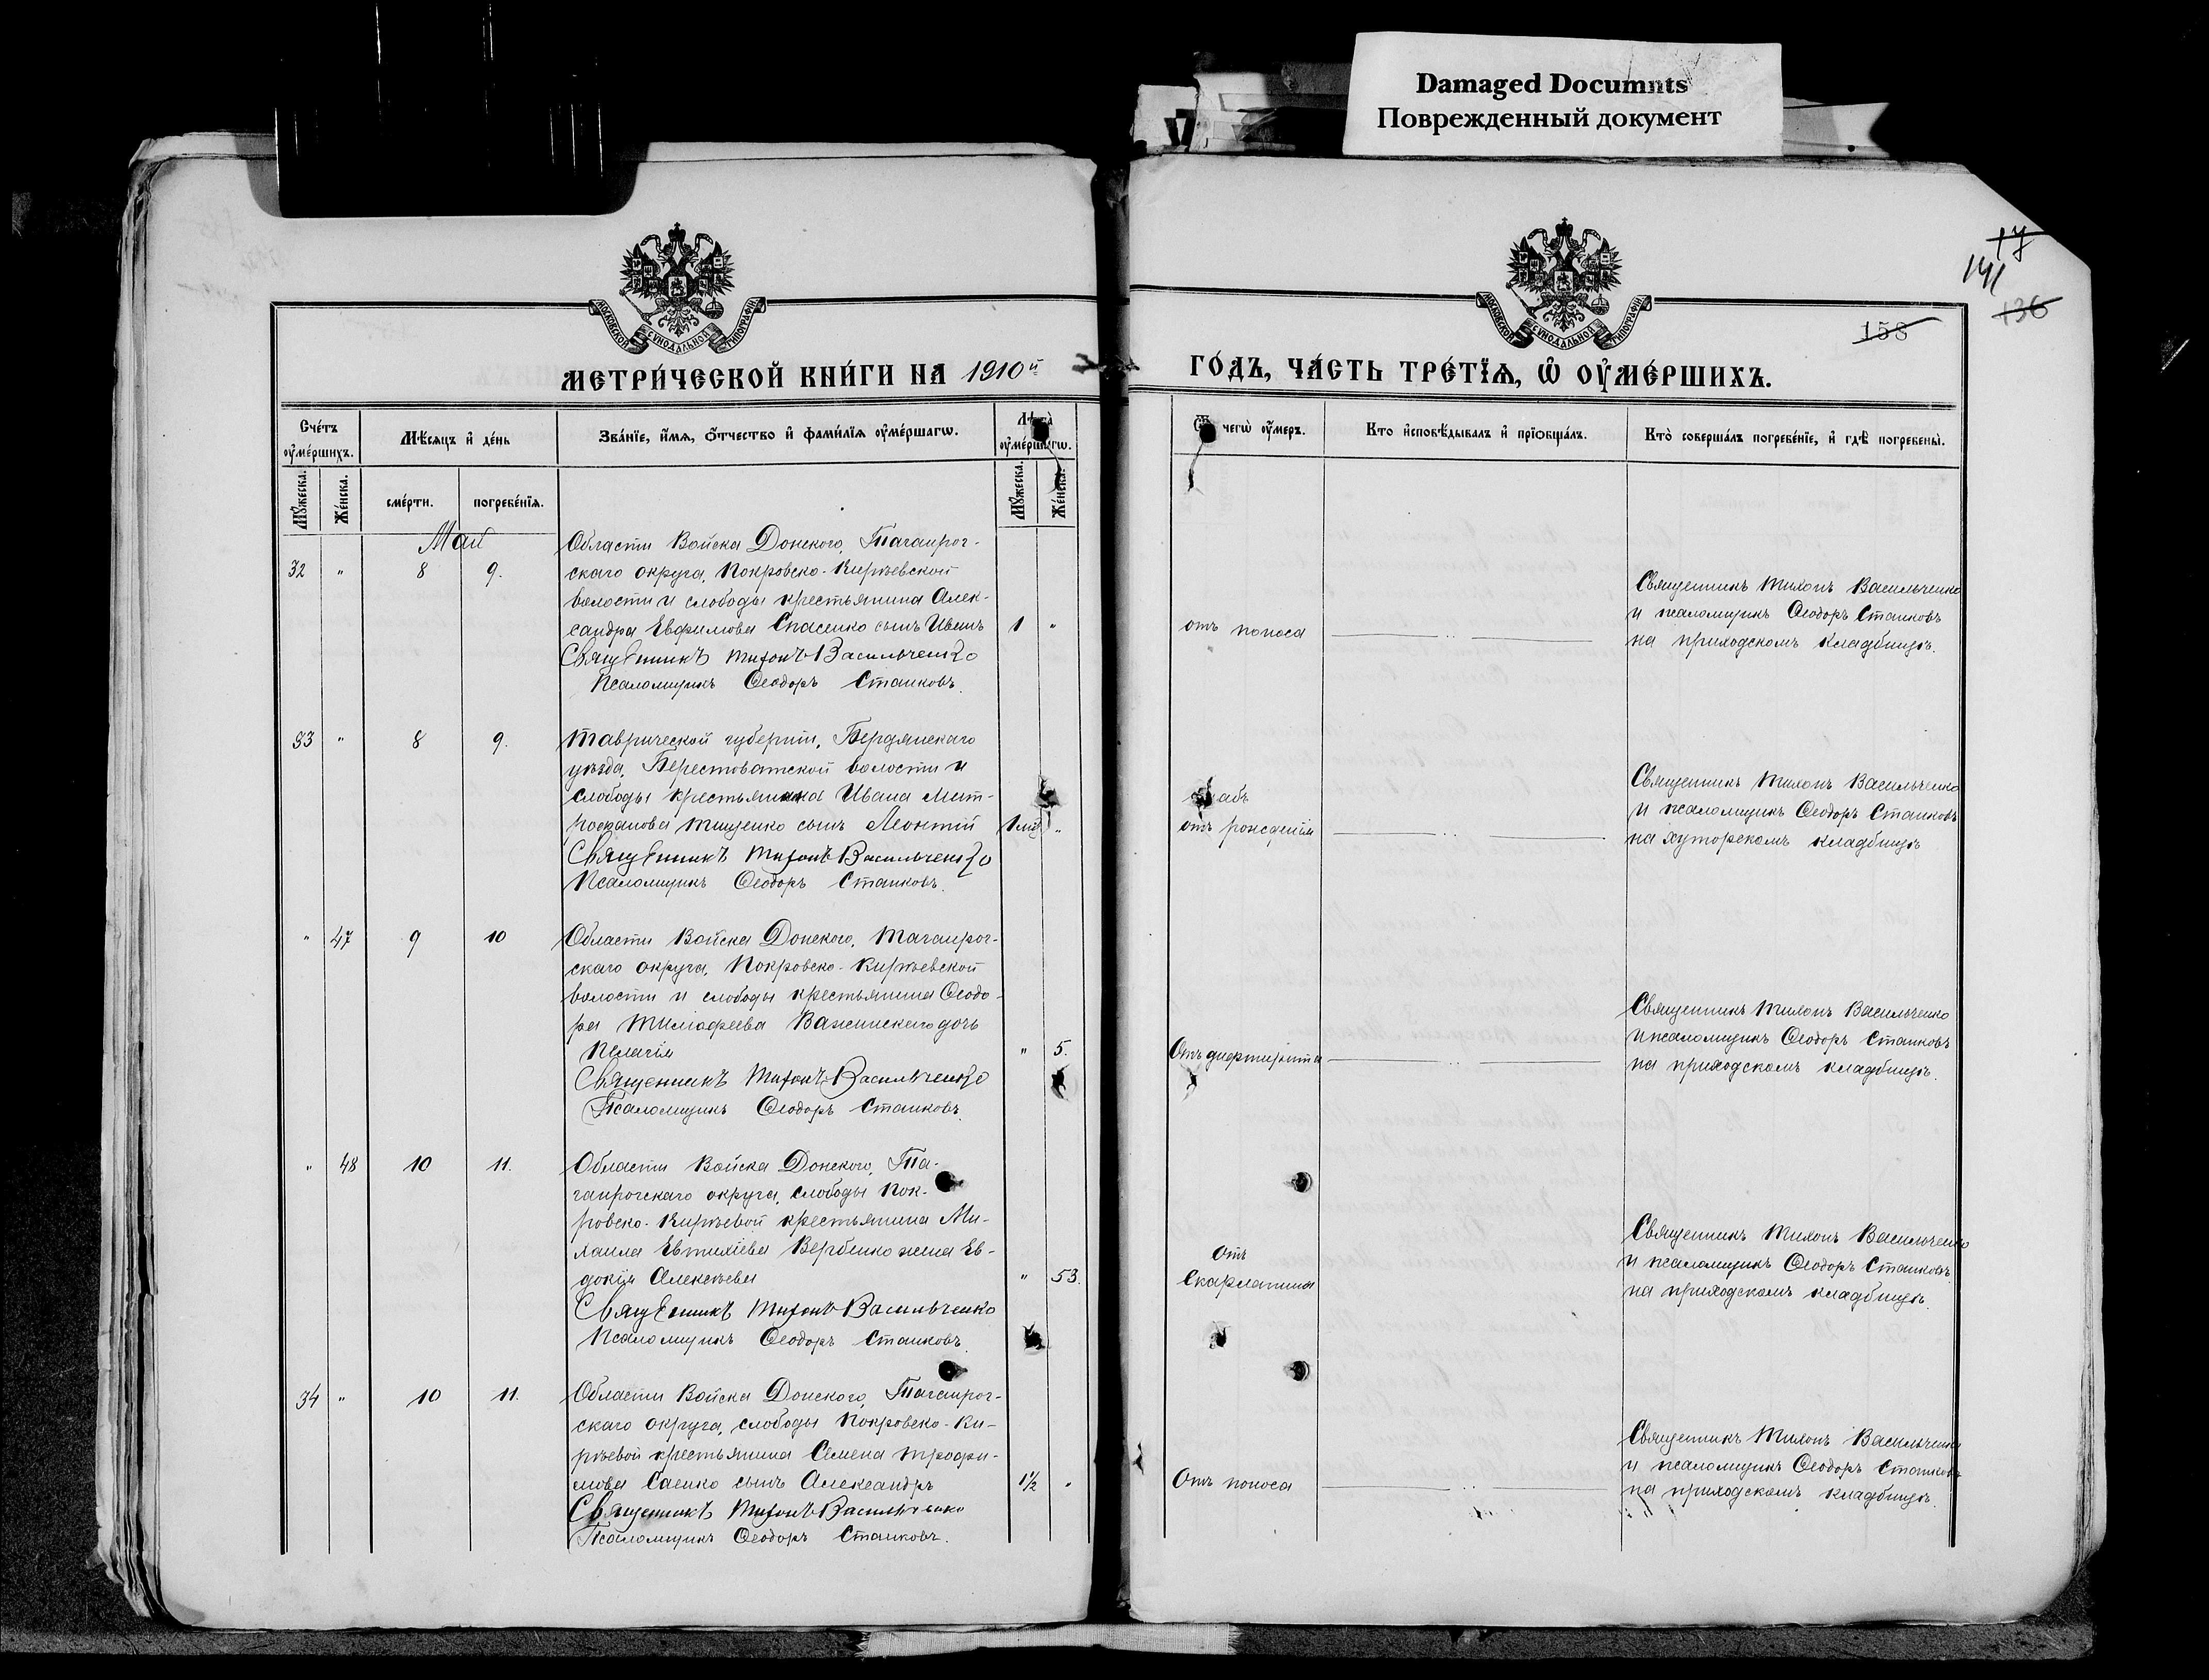 Damaged Documnts
Поврежденный документ
17
141
136
158
МОСКОВСКОЙ СѴНОДАЛЬНОЙ ТИПОГРАФІИ
МОСКОВСКОЙ СѴНОДАЛЬНОЙ ТИПОГРАФІИ
МЕТРИ́ЧЕСКОЙ КНИ́ГИ НА 1910й
ГО́ДЪ, ЧА́СТЬ ТРЕ́ТЇѦ, Ѡ҆ ОУ҆МЕ́РШИХЪ.
Сче́тъ оу҆ме́ршихъ.
Мѣ́сѧцъ и҆ де́нь
Зва́нїе, и҆́мѧ, ѻ҆́тчество и҆ фами́лїѧ оу҆ме́ршагѡ.
Лѣ́та̀ оу҆ме́ршагѡ.
Ѿ чегѡ̀ оу҆́меръ.
Кто̀ и҆сповѣ́дывалъ и҆ прїѻбща́лъ.
Кто̀ соверша́лъ погребе́нїе, и҆ гдѣ̀ погребены̀.
Мꙋ́жеска.
Же́нска.
сме́рти.
погребе́нїѧ.
Мꙋ́жеска.
Же́нска.
Май
Области Войска Донского, Таганрог-
32 " 8 9. скаго округа, Покровско-Кирѣевской
волости и слободы крестьянина Алек-
сандра Евфимова Спасенко сынъ Иванъ 1 "
Священникъ Тихонъ Васильченко
Псаломщикъ Ѳеодоръ Станковъ.
отъ поноса
Священникъ Тихонъ Васильченко
и псаломщикъ Ѳеодоръ Станковъ
на приходскомъ кладбищѣ.
33 " 8 9. Таврической губерніи, Бердянскаго
уѣзда, Берестоватской волости и
слободы крестьянина Ивана Мит-
рофанова Тищенко сынъ Леонтій "
Священникъ Тихонъ Васильченко
Псаломщикъ Ѳеодоръ Станковъ.
отъ рожденія
Священникъ Тихонъ Васильченко
и псаломщикъ Ѳеодоръ Станковъ
на хуторскомъ кладбищѣ
" 47 9 10 Области Войска Донского, Таганрог-
скаго округа, Покровско-Кирѣевской
волости и слободы крестьянина Ѳеодо-
ра Тимофеева Важинскаго дочь
Пелагія " 5.
Священникъ Тихонъ Васильченко
Псаломщикъ Ѳеодоръ Станковъ.
Отъ дифтирита
Священникъ Тихонъ Васильченко
и псаломщикъ Ѳеодоръ Станковъ
на приходскомъ кладбищѣ.
" 48 10 11. Области Войска Донского, Та-
ганрогскаго округа, слободы Пок-
ровско-Кирѣевой крестьянина Ми-
хаила Евтихіева Вербенко жена Ев-
докія Алексѣева " 53.
Священникъ Тихонъ Васильченко
Псаломщикъ Ѳеодоръ Станковъ.
Отъ
Скарлатина
Священникъ Тихонъ Васильченко
и псаломщикъ Ѳеодоръ Станковъ.
на приходскомъ кладбищѣ.
34 " 10 11. Области Войска Донского, Таганрог-
скаго округа, слободы Покровско-Ки-
рѣевой крестьянина Семена Трофи-
мова Саенко сынъ Александръ 1½ "
Священникъ Тихонъ Васильченко
Псаломщикъ Ѳеодоръ Станковъ.
Отъ поноса
Священникъ Тихонъ Васильченко
и псаломщикъ Ѳеодоръ Станковъ
на приходскомъ кладбищѣ.